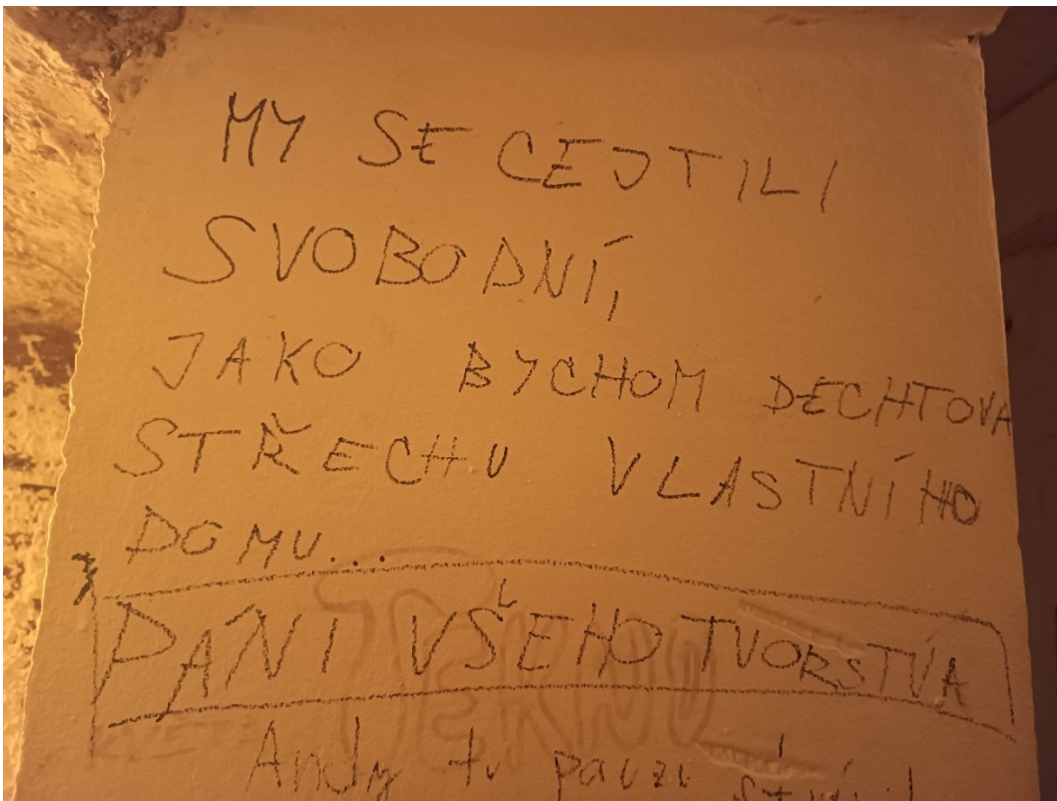 MY SE CEJTILI
SVOBODNÍ,
JAKO BYCHOM DECHTOVA
STŘECHU VLASTNÍHO
DOMU...
PÁNI VŠEHO TVORSTVA
Andy tu pauzu